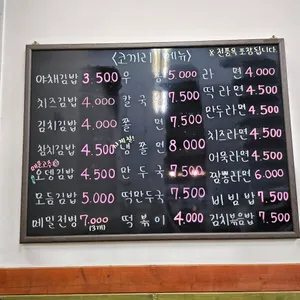 <코끼리 메뉴>
※ 전품목 포장됩니다.
야채김밥 3,500 우 동 5,000 라 면 4,000
치즈김밥 4,000 칼 국 7,500 떡 라 면 4,500
김치김밥 4,000 쫄 면 7,500 만두라면 4,500
참치김밥 4,500 냉 쫄 면 8,000 치즈라면 4,500
오뎅김밥 4,500 만 두 국 7,500 어묵라면 4,500
모듬김밥 5,000 떡만두국 7,500 짬뽕라면 6,000
메밀전병 7,000 (3개) 떡 볶 이 4,000 비 빔 밥 7,500
김치볶음밥 7,500